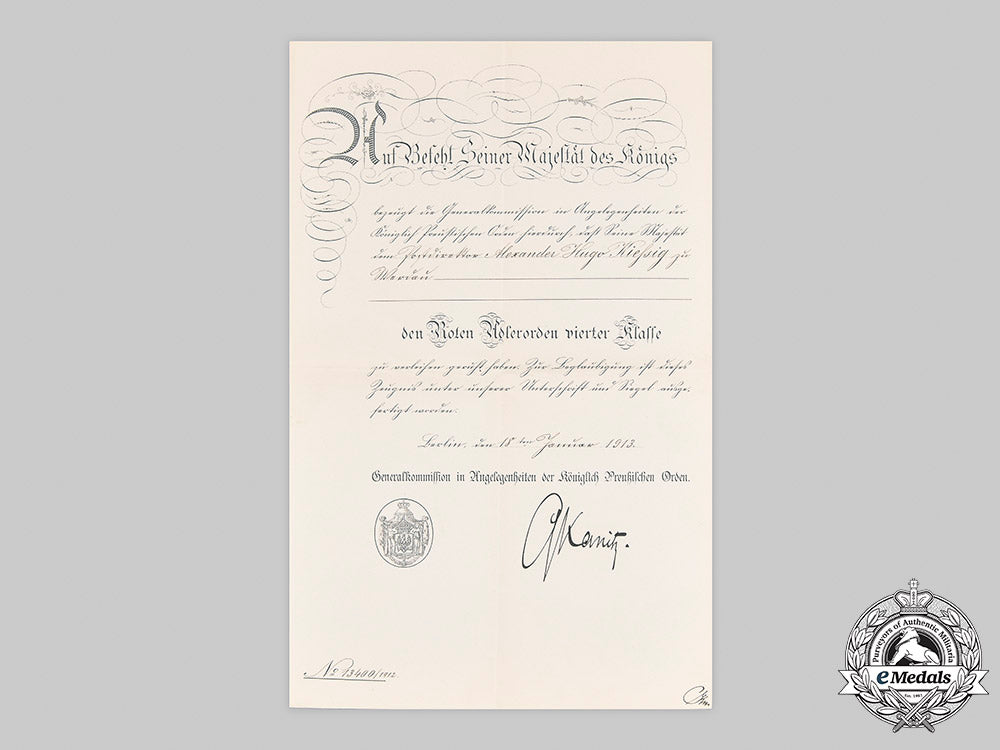 Auf Befehl Seiner Majestät des Königs
bezeugt die Generalkommission in Angelegenheiten der
Königlich Preußischen Orden hierdurch, daß Seine Majestät
dem Postdirektor Alexander Hugo Kießig zu
Werdau
den Roten Adlerorden vierter Klasse
zu verleihen geruht haben. Zur Beglaubigung ist dieses
Zeugnis unter unserer Unterschrift und Siegel ausge-
fertigt worden.
Berlin, den 18ten Januar 1913.
Generalkommission in Angelegenheiten der Königlich Preußischen Orden.
Kanitz.
No 13400/1912
Purveyors of Authentic Militaria
eMedals